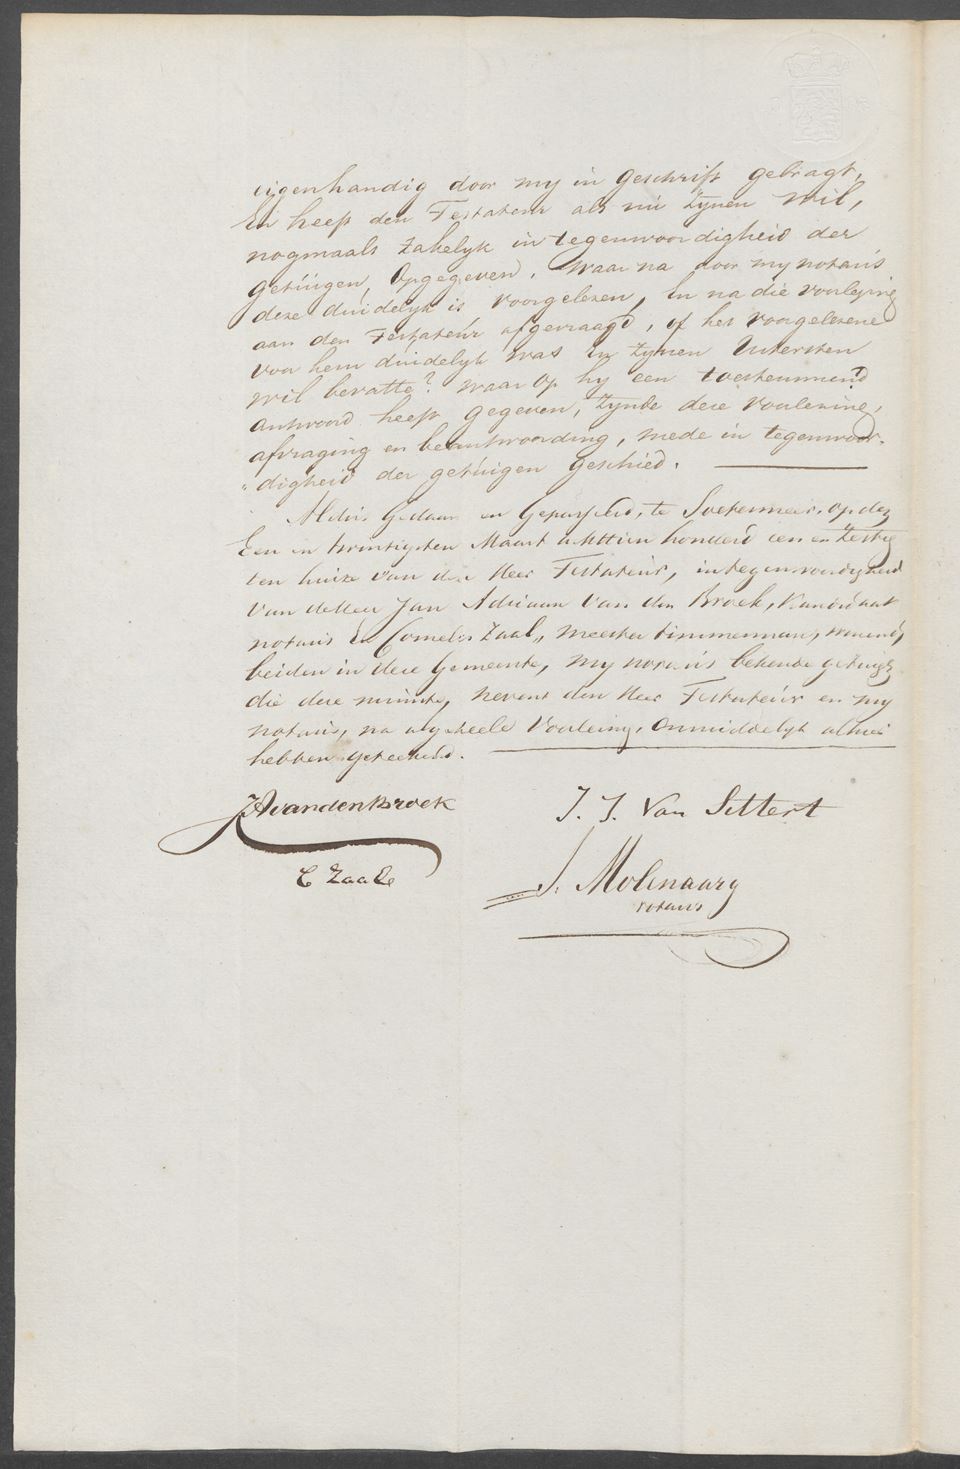 eigenhandig door my in geschrift gebragt,
En heeft den Testateur als nu zynen wil,
nogmaals zakelyk in tegenwoordigheid der
getuigen, opgegeven, waar na door my notaris
deze duidelyk is voorgelezen, En na die voorlezing
aan den Testateur afgevraagd, of het voorgelezene
voor hem duidelyk was en zynen Uitersten
wil bevatte? waar op hy een toestemmend
antwoord heeft gegeven, zynde deze voorlezing,
afvraging en beantwoording, mede in tegenwoor-
„digheid der getuigen geschied.
Aldus Gedaan en Gepasseerd, te Soetermeer, op den
Een en twintigsten Maart achttien honderd een en zestig
ten huize van den Heer Testateur, in tegenwoordigheid
van de Heer Jan Adriaan van den Broek, Kandidaat
notaris en Cornelis Zaal, meester timmerman, wonend
beiden in deze Gemeente, my notaris bekende getuigen
die deze minute, nevens den Heer Testateur en my
notaris, na algeheele voorlezing, onmiddelyk alhier
hebben geteekend.
JAvandenBroek
J. J. Van Sittert
C Zaal
J. Molenaary
notaris